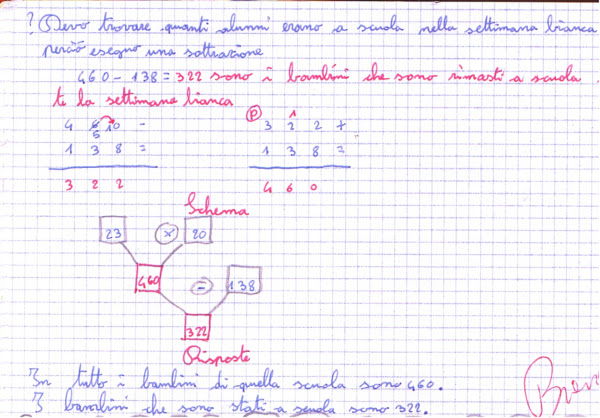 ? Devo trovare quanti alunni erano a scuola nella settimana bianca
perciò eseguo una sottrazione
460 - 138 = 322 sono i bambini che sono rimasti a scuola
te la settimana bianca
4 6 10 -
5
1 3 8 =
3 2 2
P
1
3 2 2 +
1 3 8 =
4 6 0
Schema
23 × 20
460 - 138
322
Risposte
In tutto i bambini di quella scuola sono 460.
I bambini che sono stati a scuola sono 322.